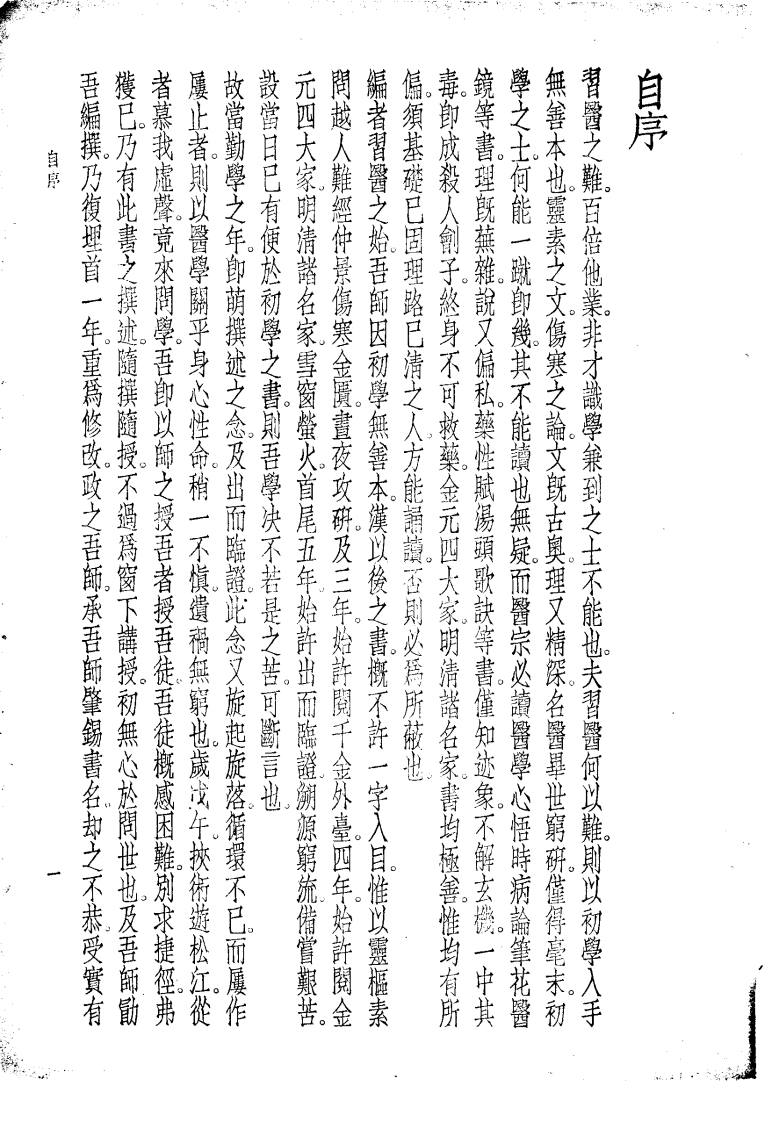 自序
習醫之難。百倍他業。非才識學兼到之士不能也。夫習醫何以難。則以初學入手
無善本也。靈素之文。傷寒之論。文旣古奧。理又精深。名醫畢世窮研。僅得毫末。初
學之士。何能一蹴卽幾。其不能讀也無疑。而醫宗必讀醫學心悟時病論筆花醫
鏡等書。理旣蕪雜。說又偏私。藥性賦湯頭歌訣等書。僅知迹象。不解玄機。一中其
毒。卽成殺人劊子。終身不可救藥。金元四大家。明清諸名家。書均極善。惟均有所
偏。須基礎已固理路已清之人。方能誦讀。否則必爲所蔽也。
編者習醫之始。吾師因初學無善本。漢以後之書。槪不許一字入目。惟以靈樞素
問越人難經仲景傷寒金匱。晝夜攻研。及三年。始許閱千金外臺。四年。始許閱金
元四大家。明清諸名家。雪窗螢火。首尾五年。始許出而臨證。溯源窮流。備嘗艱苦。
設當日已有便於初學之書。則吾學決不若是之苦。可斷言也。
故當勤學之年。卽萌撰述之念。及出而臨證。此念又旋起旋落。循環不已。而屢作
屢止者。則以醫學關乎身心性命。稍一不愼。遺禍無窮也。歲戊午。挾術遊松江。從
者慕我虛聲。竟來問學。吾卽以師之授吾者授吾徒。吾徒槪感困難。別求捷徑。弗
獲已。乃有此書之撰述。隨撰隨授。不過爲窗下講授。初無心於問世也。及吾師勖
吾編撰。乃復埋首一年。重爲修改。政之吾師。承吾師肇錫書名。却之不恭。受實有
自序
一